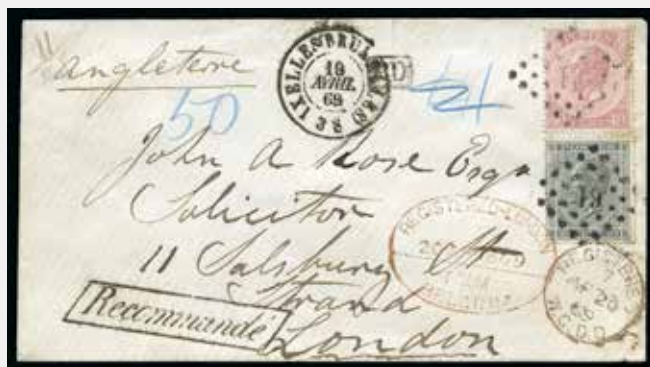 Angleterre
IXELLES (BRUXELLES)
19
AVRIL
69
3 S
PD
50
John A Rose Esqre
Solicitor
11 Salsbury St
Strand
London
Recommandé
REGISTERED LONDON
REGISTERED
28
W.C.D.O